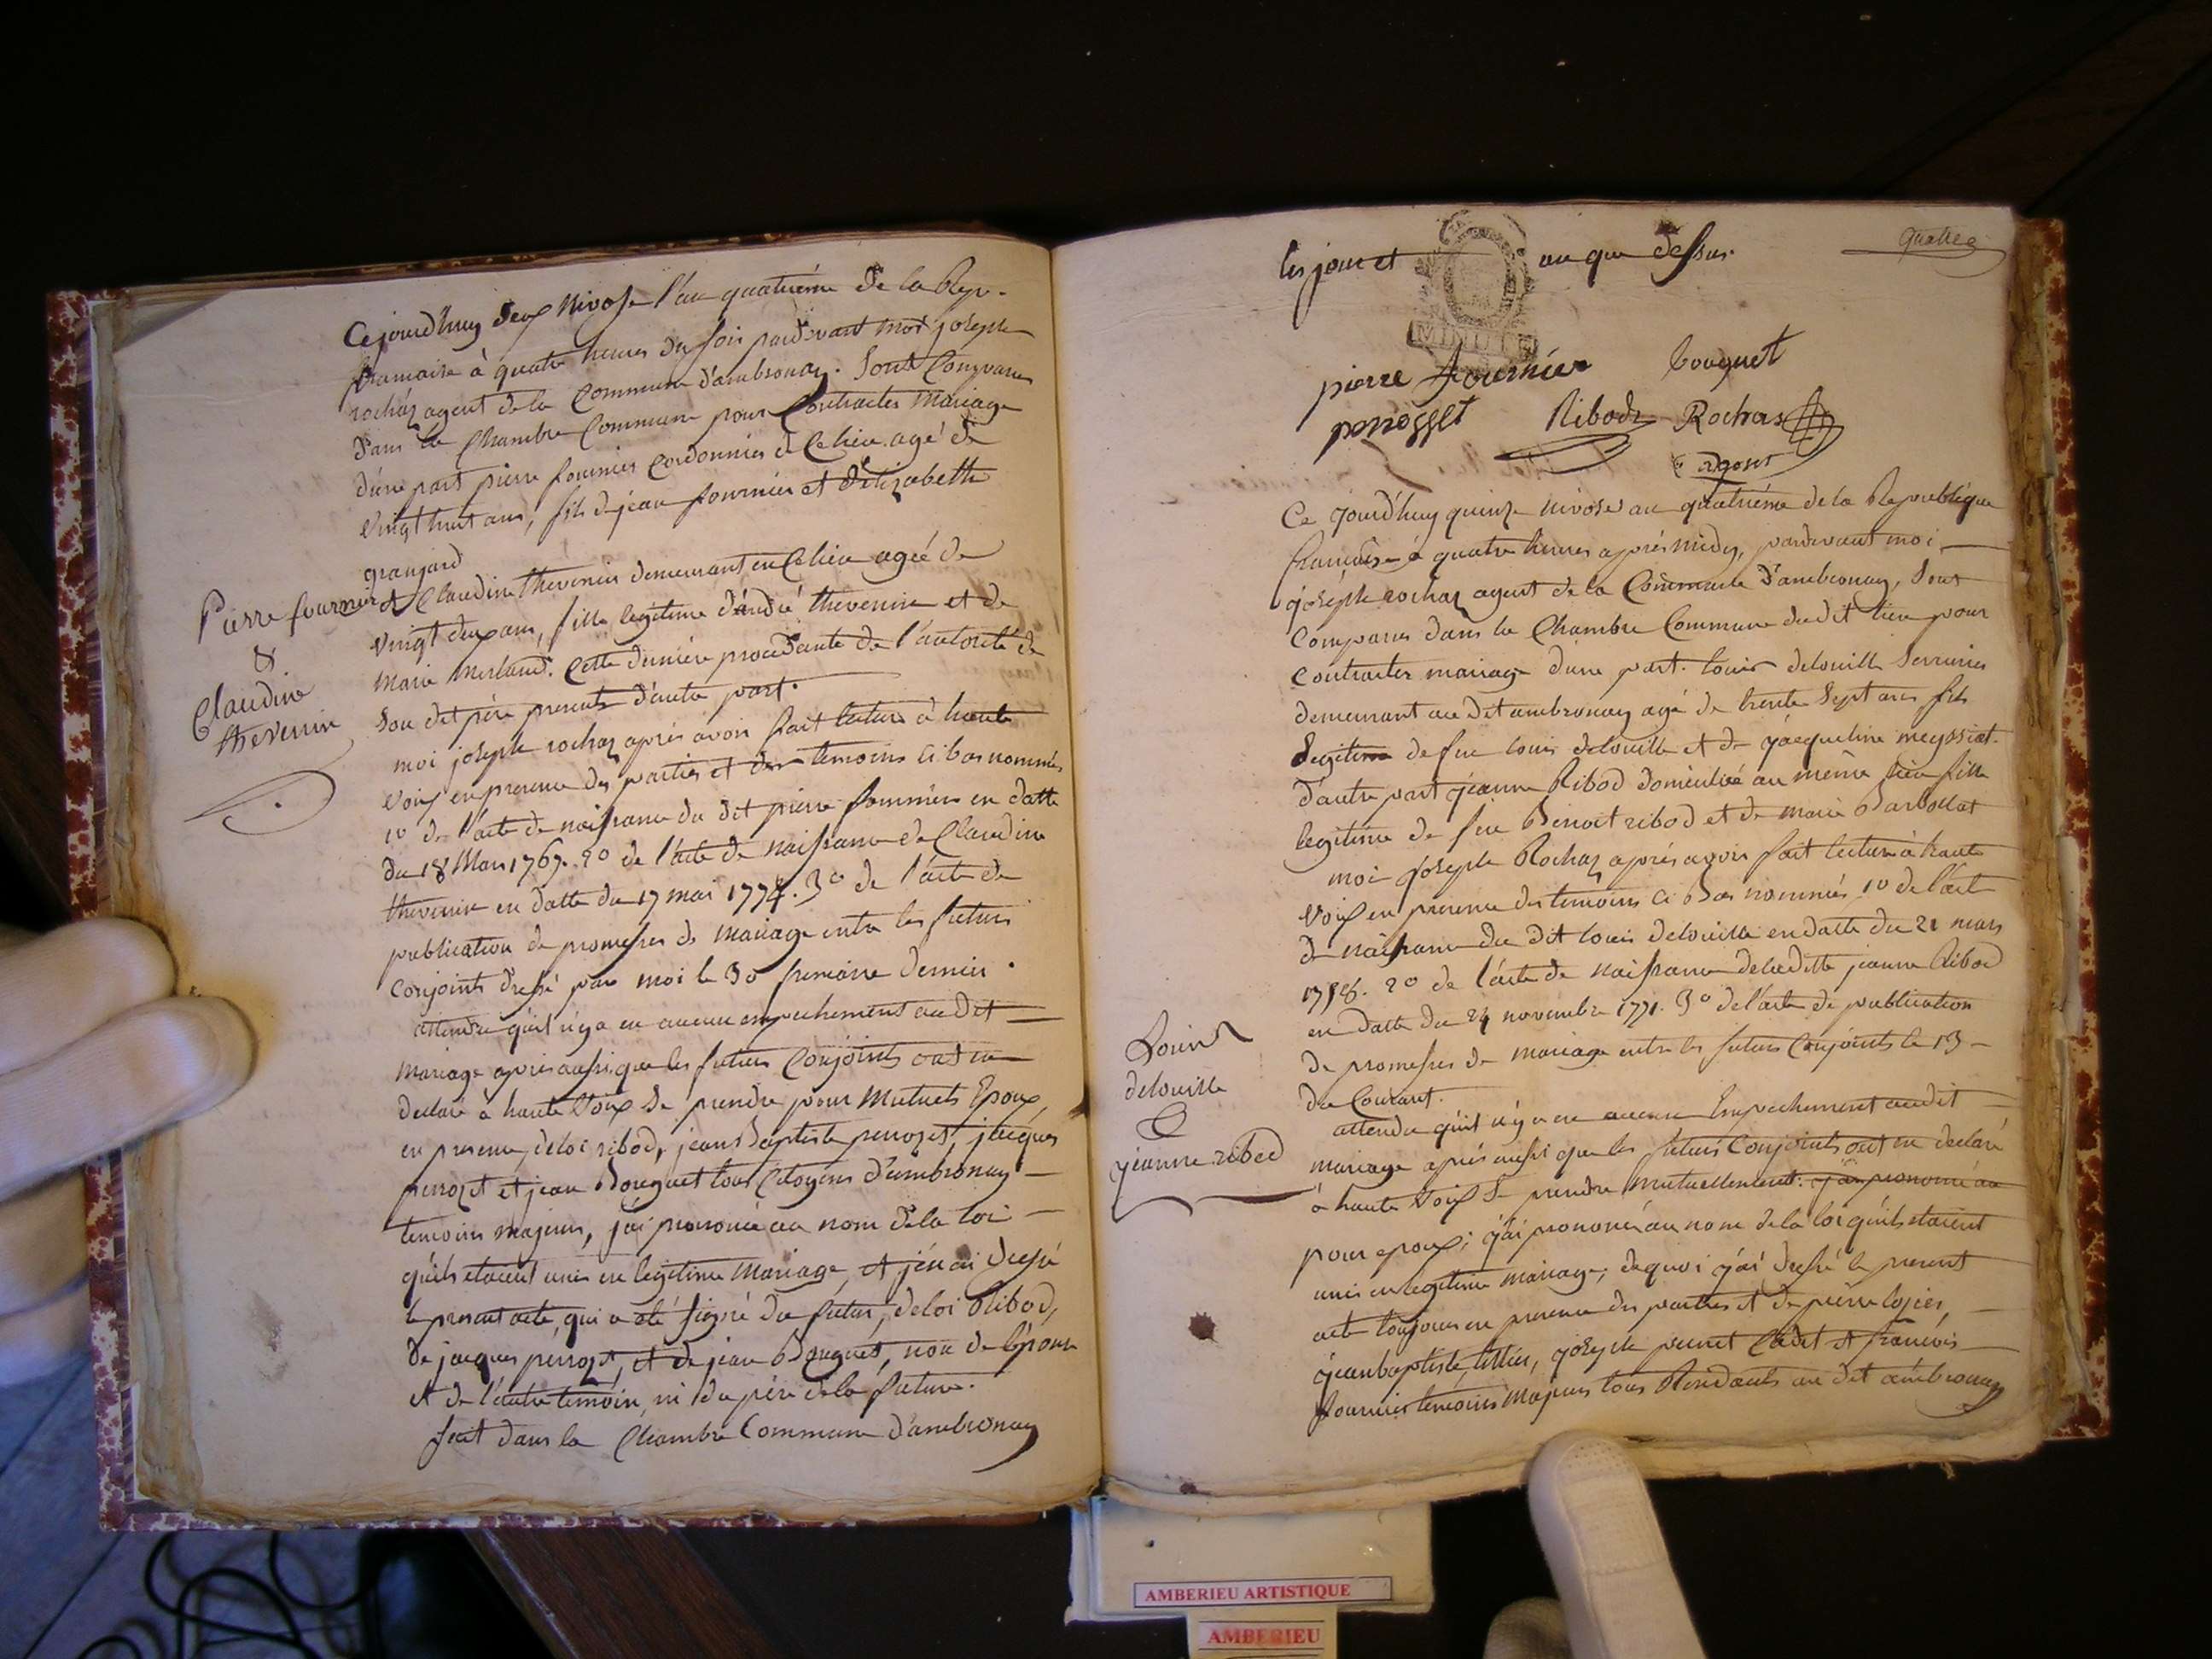 Cejourdhuy deux Nivose l'an quatriéme de la Rép.
francaise à quatre heures du soir pardevant moi joseph
rochaz agent de la Commune d'ambronay. Sont Comparus
dans la Chambre Commune pour Contracter Mariage
d'une part pierre fournier Cordonnier de Ce lieu agé de
vingt huit ans, fils de jean fournier et d'élizabeth
granjard
et Claudine thevenin demeurant en Ce lieu agée de
vingt deux ans, fille legitime d'andré thevenin et de
Marie . Cette derniére procedante de l'autorité de
Son dit pére present d'autre part.
moi joseph rochaz aprés avoir fait lecture à haute
voix en presence des parties et des temoins ci bas nommés
1o de l'acte de naissance du dit pierre fournier en datte
du 18 Mars 1767. 2o de l'acte de naissance de Claudine
thevenin en datte du 17 mai 1774. 3o de l'acte de
publication de promesses de mariage entre les futurs
Conjoints dressé par moi le 30 frimaire dernier.
attendu qu'il n'y a eu aucun empechement au dit
mariage aprés aussi que les futurs Conjoints ont eu
declaré à haute voix Se prendre pour Mutuels Epoux
en presence, deloi ribod, jean Baptiste perrozet, jacques
perrozet et jean Bouguet tous Citoyens d'ambronay
temoins majeurs, j'ai prononcé au nom de la loi
qu'ils etaient unis en legitime Mariage, et j'en ai dressé
le present acte, qui a eté signé du futur, deloi Ribod,
de jacques perrozet, et de jean Bouguet, non de l'épouse
et de l'autre temoin, ni du pére de la future.
fait dans la Chambre Commune d'ambronay
Pierre fournier
&
Claudine
thevenin
quatre
les jour et an que dessus.
MINUTE
pierre fournier bouguet
perosset Ribod Rochas
agent
Ce jourd'huy quinze nivose an quatriéme de la Republique
francaise à quatre heures aprés midy, pardevant moi
joseph rochaz agent de la Commune d'ambronay, Sont
Comparus dans la Chambre Commune du dit lieu pour
Contracter mariage d'une part. louis delouille Serrurier
demeurant au dit ambronay agé de trente Sept ans fils
Legitime de feu louis delouille et de jacqueline meyssiat.
d'autre part jeanne Ribod domiciliée au même lieu fille
legitime de feu Benoit ribod et de marie Barbollat
moi joseph Rochaz aprés avoir fait lecture à haute
voix en presence des temoins ci Bas nommés 1o de l'acte
de naissance du dit louis delouille en datte du 21 mars
2o de l'acte de naissance de la ditte jeanne Ribod
en datte du 24 novembre 1771. 3o de l'acte de publication
de promesses de mariage entre les futurs Conjoints le 13
du Courant.
attendu qu'il n'y a eu aucun Empechement au dit
mariage aprés aussi que les futurs Conjoints ont eu declaré
à haute voix Se prendre Mutuellement. j'ai prononcé au
pour epoux; j'ai prononcé au nom de la loi qu'ils etaient
unis en legitime mariage; de quoi j'ai dressé le present
acte toujours en presence des parties et de pierre logier,
jean baptiste, joseph perret Cadet et francois
fournier temoins majeurs tous Residants au dit ambronay
Louis
delouille
&
jeanne ribod
AMBERIEU ARTISTIQUE
AMBERIEU